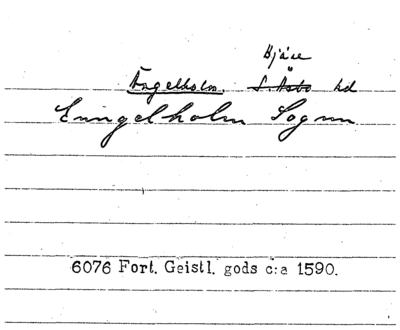 Bjäre
Ängelholm. S. Åsbo hd
Enngelholm Sognn
6076 Fort. Geistl. gods c:a 1590.